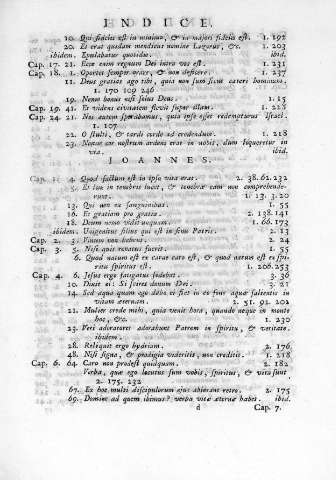 INDICE.
10. Qui fidelis est in minimo, & in majori fidelis est. 1. 192
20. Et erat quidam mendicus nomine Lazarus, &c. 1. 203
ibidem. Epulabatur quotidie. ibid.
Cap. 17. 21. Ecce enim regnum Dei intra vos est. 1. 231
Cap. 18. 1. Oportet semper orare, & non deficere. 1. 237
11. Deus gratias ago tibi, quia non sum sicut cæteri hominum.
1. 170 109 246
19. Nemo bonus nisi solus Deus. 1. 15
Cap. 19. 41. Et videns civitatem flevit super illam. 1. 218
Cap. 24. 21. Nos autem sperabamus, quia ipse esset redempturus Israel.
1. 107
25. O stulti, & tardi corde ad credendum. 1. 218
Nonne cor nostrum ardens erat in nobis, dum loqueretur in
via. ibid.
JOANNES.
Cap. 4. Quod factum est in ipso vita erat. 2. 38. 62. 232
5. Et lux in tenebris lucet, & tenebræ eam non comprehende-
runt. 1. 13. 3. 20
13. Qui non ex sanguinibus. 1. 55
16. Et gratiam pro gratia. 2. 138. 141
18. Deum nemo vidit unquam. 1. 66. 173
ibidem. Unigenitus filius qui est in sinu Patris. 2. 13
Cap. 2. 3. Vinum non habent. 2. 24
Cap. 3. 5. Nisi quis renatus fuerit. 1. 55
6. Quod natum est ex carne caro est, & quod natum est ex spi-
ritu spiritus est. 1. 206. 253
Cap. 4. 6. Jesus ergo fatigatus sedebat. 3. 36
10. Dixit ei: Si scires donum Dei. 3. 21
14. Sed aqua quam ego dabo ei fiet in eo fons aquæ salientis in
vitam æternam. 2. 51. 91. 202
21. Mulier crede mihi, quia venit hora, quando neque in monte
hoc, &c. 1. 230
23. Veri adoratores adorabunt Patrem in spiritu, & veritate.
ibidem.
28. Reliquit ergo hydriam. 2. 176
48. Nisi signa, & prodigia videritis, non creditis. 1. 218
Cap. 6. 64. Caro non prodest quidquam. 2. 182
Verba, quæ ego locutus sum vobis, spiritus, & vita sunt
2. 175. 232
67. Ex hoc multi discipulorum ejus abierunt retro. 2. 175
69. Domine ad quem ibimus? verba vitæ æternæ habes. ibid.
d Cap. 7.